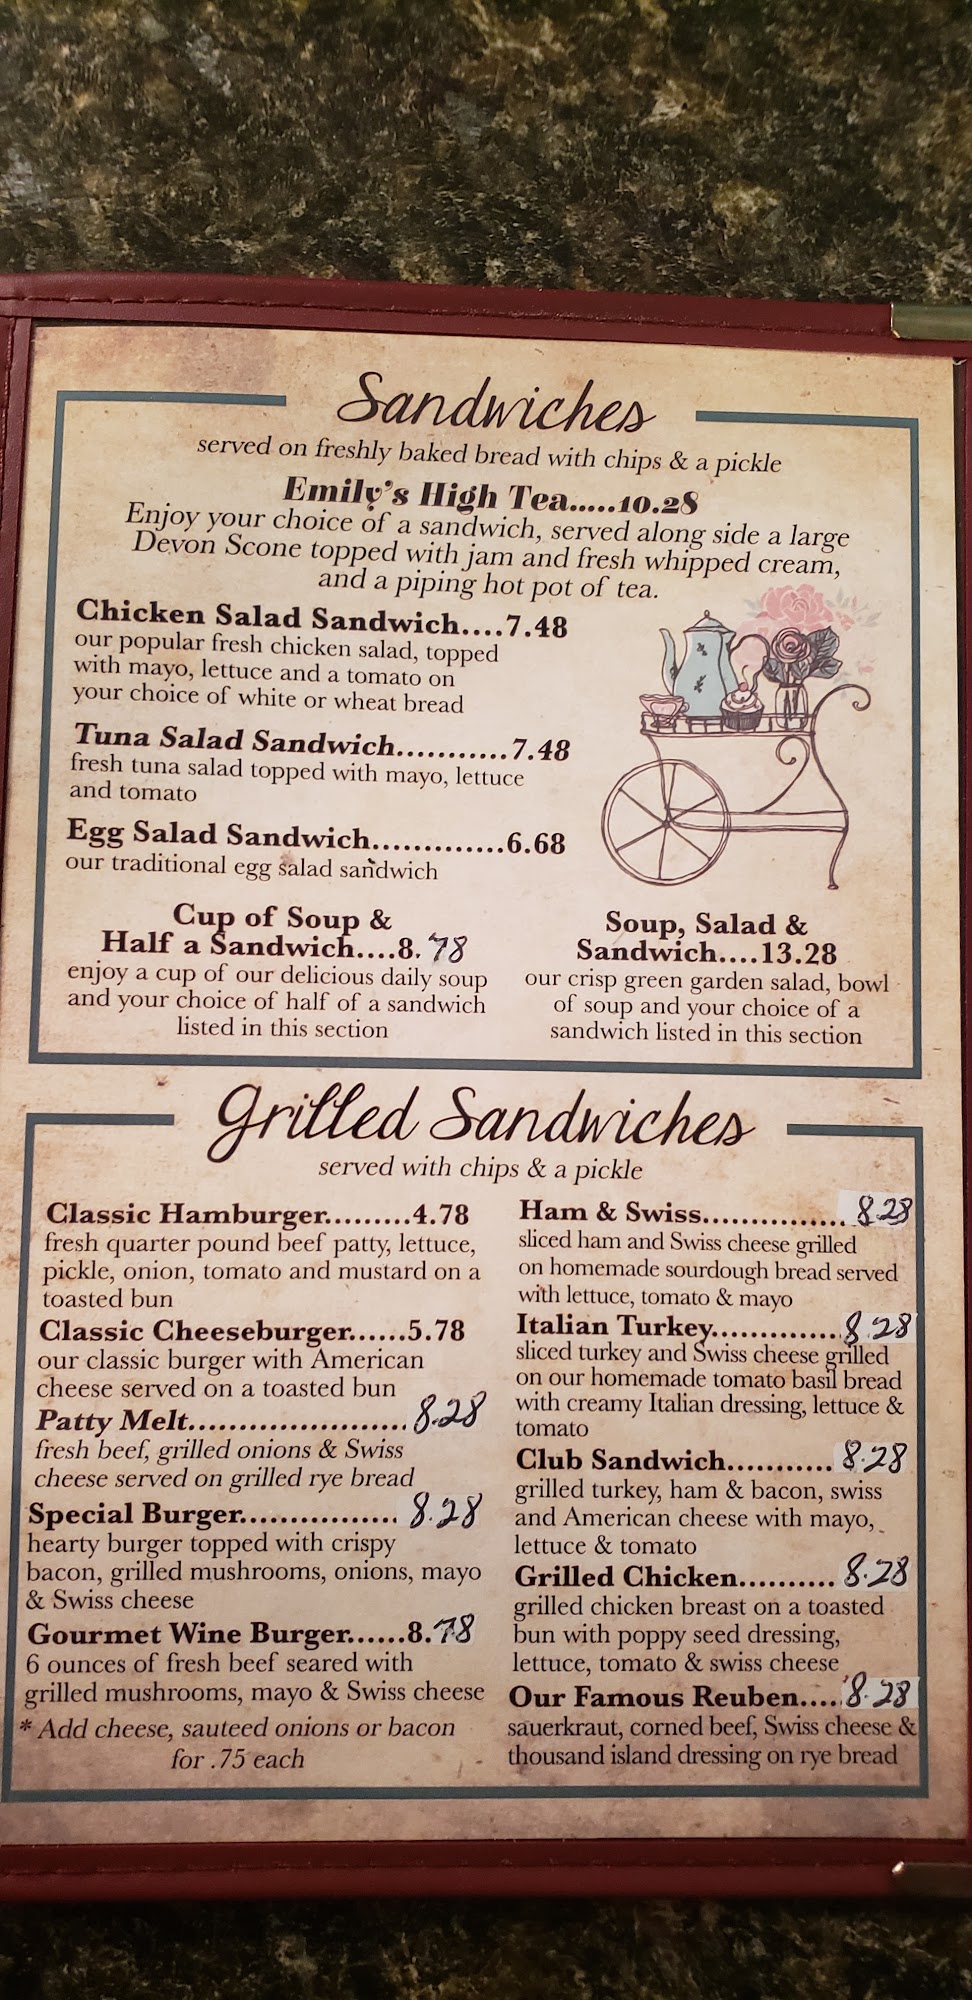 Sandwiches
served on freshly baked bread with chips & a pickle
Emily's High Tea.....10.28
Enjoy your choice of a sandwich, served along side a large
Devon Scone topped with jam and fresh whipped cream,
and a piping hot pot of tea.
Chicken Salad Sandwich....7.48
our popular fresh chicken salad, topped
with mayo, lettuce and a tomato on
your choice of white or wheat bread
Tuna Salad Sandwich...........7.48
fresh tuna salad topped with mayo, lettuce
and tomato
Egg Salad Sandwich.............6.68
our traditional egg salad sandwich
Cup of Soup &
Half a Sandwich....8.78
enjoy a cup of our delicious daily soup
and your choice of half of a sandwich
listed in this section
Soup, Salad &
Sandwich....13.28
our crisp green garden salad, bowl
of soup and your choice of a
sandwich listed in this section
Grilled Sandwiches
served with chips & a pickle
Classic Hamburger.........4.78
fresh quarter pound beef patty, lettuce,
pickle, onion, tomato and mustard on a
toasted bun
Classic Cheeseburger......5.78
our classic burger with American
cheese served on a toasted bun
Patty Melt.......................8.28
fresh beef, grilled onions & Swiss
cheese served on grilled rye bread
Special Burger................8.28
hearty burger topped with crispy
bacon, grilled mushrooms, onions, mayo
& Swiss cheese
Gourmet Wine Burger......8.78
6 ounces of fresh beef seared with
grilled mushrooms, mayo & Swiss cheese
* Add cheese, sauteed onions or bacon
for .75 each
Ham & Swiss................8.28
sliced ham and Swiss cheese grilled
on homemade sourdough bread served
with lettuce, tomato & mayo
Italian Turkey..............8.28
sliced turkey and Swiss cheese grilled
on our homemade tomato basil bread
with creamy Italian dressing, lettuce &
tomato
Club Sandwich...........8.28
grilled turkey, ham & bacon, swiss
and American cheese with mayo,
lettuce & tomato
Grilled Chicken..........8.28
grilled chicken breast on a toasted
bun with poppy seed dressing,
lettuce, tomato & swiss cheese
Our Famous Reuben....8.28
sauerkraut, corned beef, Swiss cheese &
thousand island dressing on rye bread